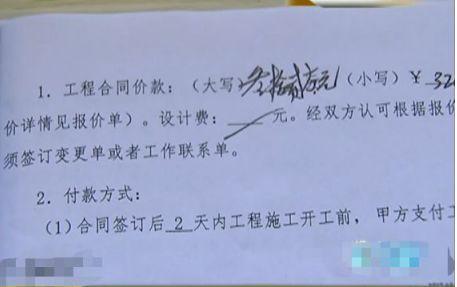 1. 工程合同价款：（大写）叁拾贰万元（小写）￥ 32
价详情见报价单）。设计费：____元。经双方认可根据报价
须签订变更单或者工作联系单。
2. 付款方式：
(1)合同签订后 2 天内工程施工开工前，甲方支付工